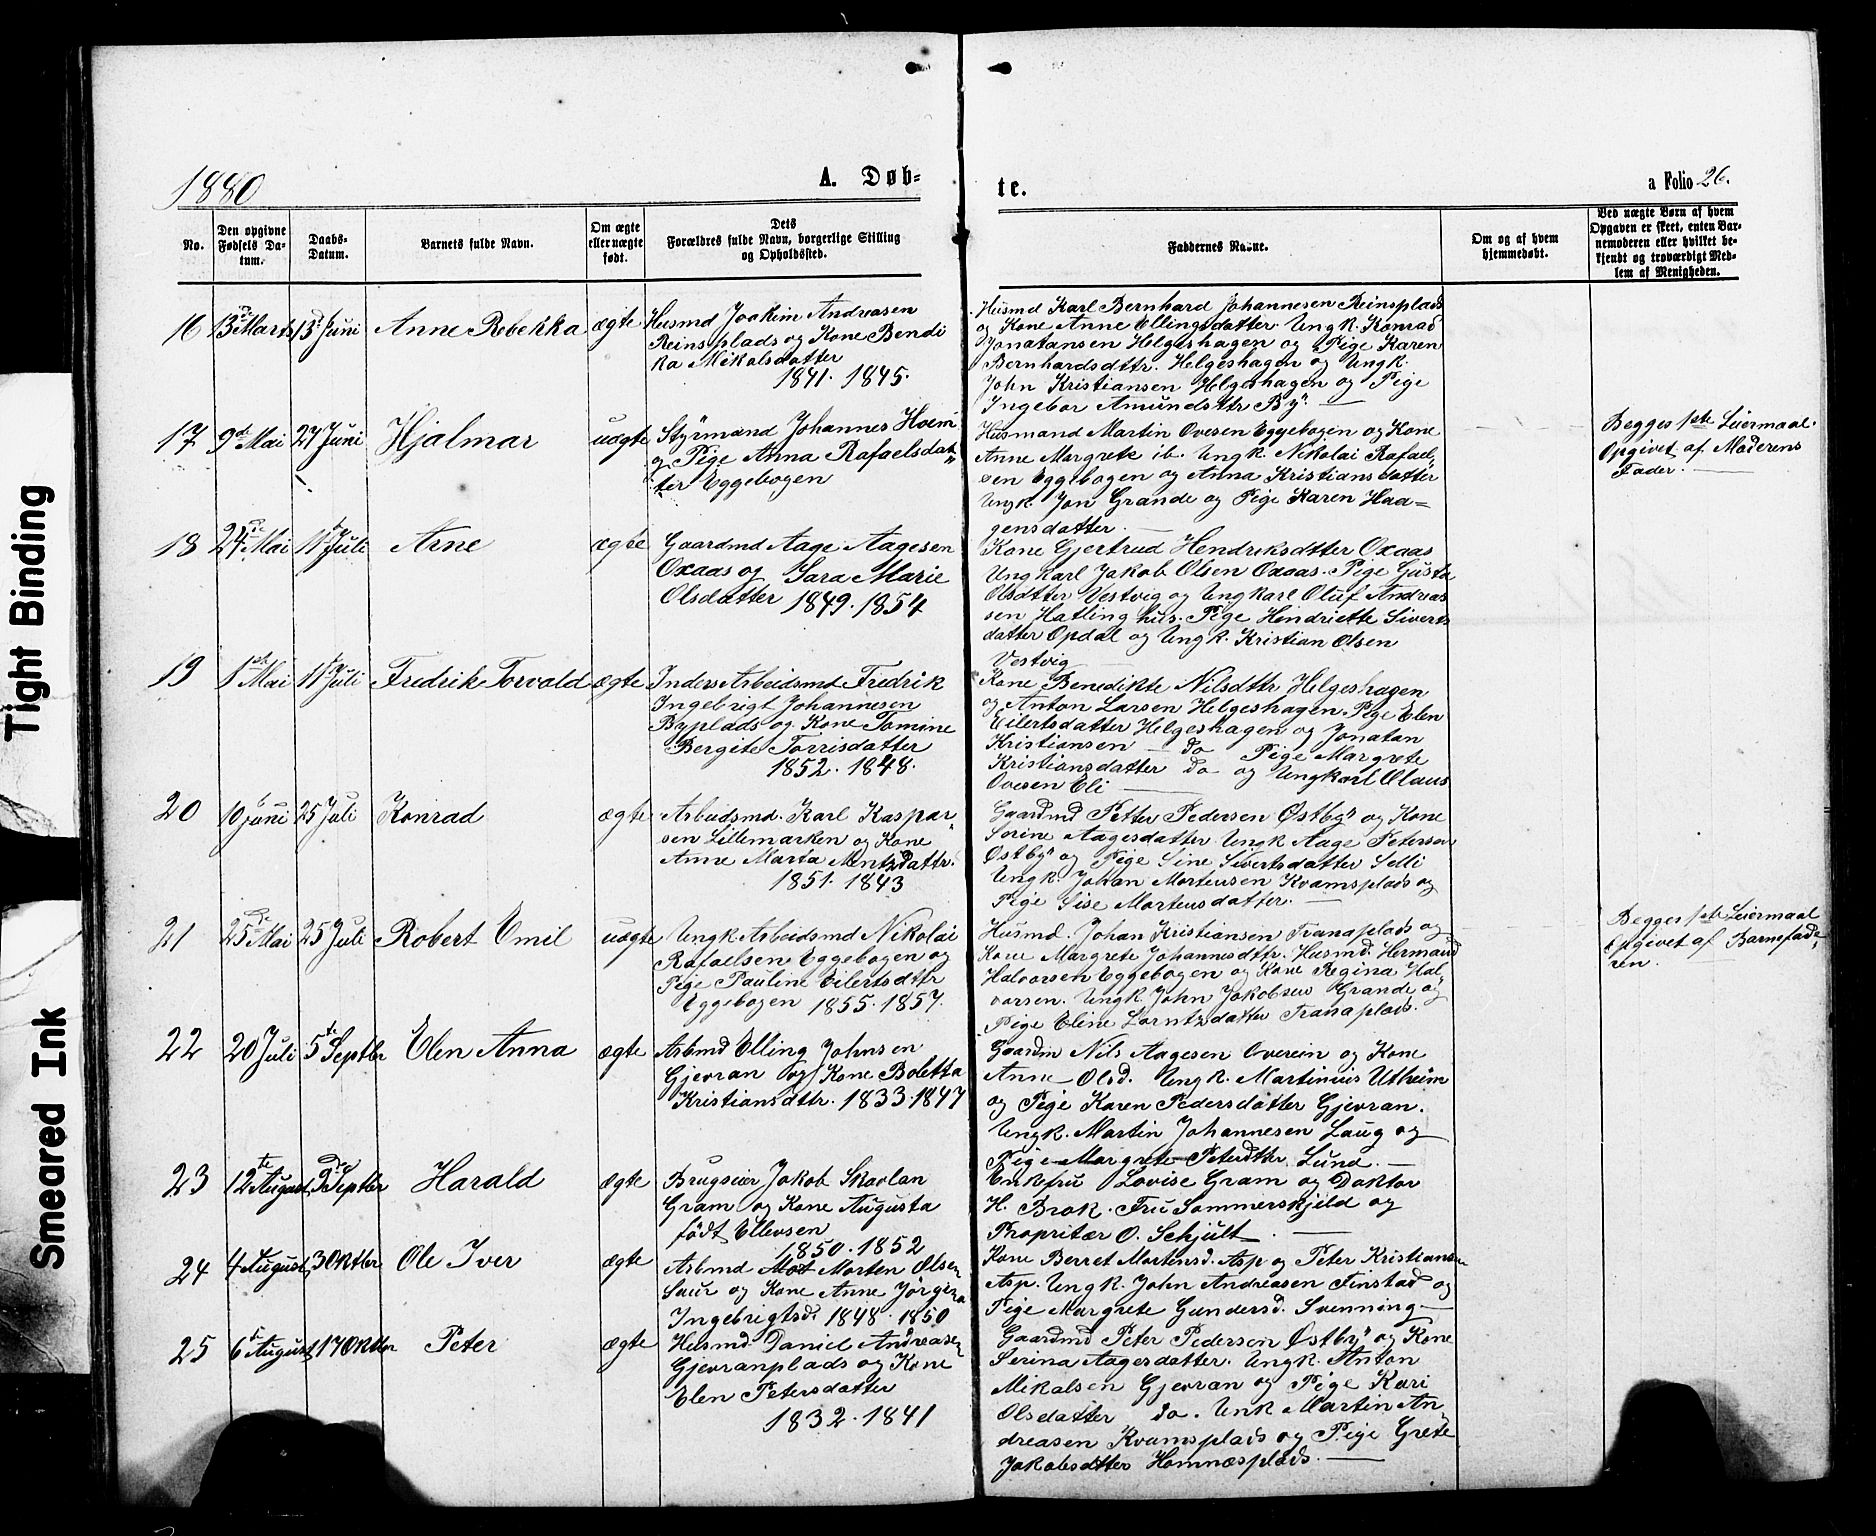 1880
A. Døb-
te.
a Folio 26.
No.
Den opgivne
Fødsels Da-
tum.
Daabs-
Datum.
Barnets fulde Navn.
Om ægte
eller uægte
født.
Dets
Forældres fulde Navn, borgerlige Stilling
og Opholdssted.
Faddernes Navne.
Om og af hvem
hjemmedøbt.
Ved uægte Børn af hvem
Opgaven er skeet, enten Bar-
nemoderen eller hvilket be-
kjendt og troværdigt Med-
lem af Menigheden.
16 13de Marts 13de Juni Anne Rebekka ægte
Husmd Joakim Andreasen
Reinsplads og Kone Bendi
ka Mikalsdatter
1841. 1845.
Husmd Karl Bernhard Johannesen Reinsplads
og Kone Anne Ellingsdatter. Ungk. Konrad
Jonatansen Helgeshagen og Pige Karen
Bernhardsdttr. Helgeshagen og Ungk.
John Kristiansen Helgeshagen og Pige
Ingebor Amundsttr By. —
17 9de Mai 27 Juni Hjalmar uægte
Styrmand Johannes Hoem
og Pige Anna Rafaelsdat"
ter Eggebogen
Husmand Martin Ovesen Eggebogen og Kone
Anne Margrete ib. Ungk. Nikolai Rafael,
sen Eggebogen og Anna Kristiansdatter
Ungk. Jon Grande og Pige Karen Haa=
gensdatter. —
Begges 1ste Leiermaal.
Opgivet af Moderens
Fader. —
18 24de Mai 11te Juli Arne ægte
Gaardmd Aage Aagesen
Oxaas og Sara Marie
Olsdatter 1849. 1854
Kone Gjertrud Hendriksdtter Oxaas
Ungkarl Jakob Olsen Oxaas. Pige Gusta
Olsdtter Vestvig og Ungkarl Oluf Andreas
sen Hatlinghus. Pige Hendriette Siverts
datter Opdal og Ungk. Kristian Olsen
Vestvig —
19 1ste Mai 11te Juli Fredrik Torvald ægte
Inders Arbeidsmd Fredrik
Ingebrigt Johannesen
Byplads og Kone Tomine
Bergite Torrisdatter
1852. 1848.
Kone Benedikte Nilsdttr Helgeshagen
og Anton Larsen Helgeshagen. Pige Elen
Eilertsdatter Helgeshagen og Jonatan
Kristiansen — do Pige Margrete
Kristiansdatter do og Ungkarl Olaus
Ovesen Eli —
20 10 Juni 25 Juli Konrad ægte
Arbeidsmd. Karl Kaspar"
sen Lillemarken og Kone
Anne Marta Mentzdattr.
1851. 1843
Gaardmd Petter Pedersen Østby og Kone
Serine Aagesdatter Ungk Aage Petersen
Østby og Pige Sine Sivertsdatter Selli
Ungk. Johan Mortensen Kvamsplads og
Pige Sise Mortensdatter. —
21 25de Mai 25 Juli Robert Emil uægte
Ungk Arbeidsmd Nikolai
Rafaelsen Eggebogen og
Pige Pauline Eilertsdttr
Eggebogen 1855. 1857.
Husmd. Johan Kristiansen Tranaplads og
Kone Margrete Johannesdttr. Husmd. Hermand
Halvorsen Eggebogen og Kone Regina Hal,
vorsen. Ungk. John Jakobsen Grande og
Pige Eline Lorntzdatter Tranaplads.
Begges 1ste Leiermaal
Opgivet af Barnefade,
ren.
22 20 Juli 5te Septbr Elen Anna ægte
Arbmd Elling Johnsen
Gjevran og Kone Boletta
Kristiansdttr. 1833. 1847
Gaardm Nils Aagesen Overein og Kone
Anne — Olsd. Ungk. Martinius Utheim
og Pige Karen Pedersdatter Gjevran.
Ungk. Martin Johannesen Laug og
Pige Margrete Peterdttr Lund. —
23 12te August 3de Septbr Harald ægte
Brugseier Jakob Skavlan
Gram og Kone Augusta
født Ellevsen
1850. 1852
Enkefru Lovise Gram og Doktor
H. Brok. Fru Sommerskjeld og
Propritær O. Schjült. —
24 4 August 3 Oktbr Ole Iver ægte
Arbmd Mot Morten Olsen
Saur og Kone Anne Jørgina
Ingebrigtsd. 1848. 1850
Kone Berret Martensd. Asp og Peter Kristiansen
Asp. Ungk. John Andreasen Finstad og
Pige Margrete Gundersd. Svenning —
25 6te August 17 Oktbr Peter ægte
Husmd Daniel Andreasen
Gjevranplads og Kone
Elen Petersdatter
1832. 1841
Gaardmd Peter Pedersen Østby og Kone
Serina Aagesdatter. Ungk. Anton
Mikalsen Gjevran og Pige Kari
Olsdatter do. Unk Martin An,
dreasen Kvamsplads og Pige Grete
Jakobsdtter Homnæsplads. —
Tight Binding
Smeared Ink